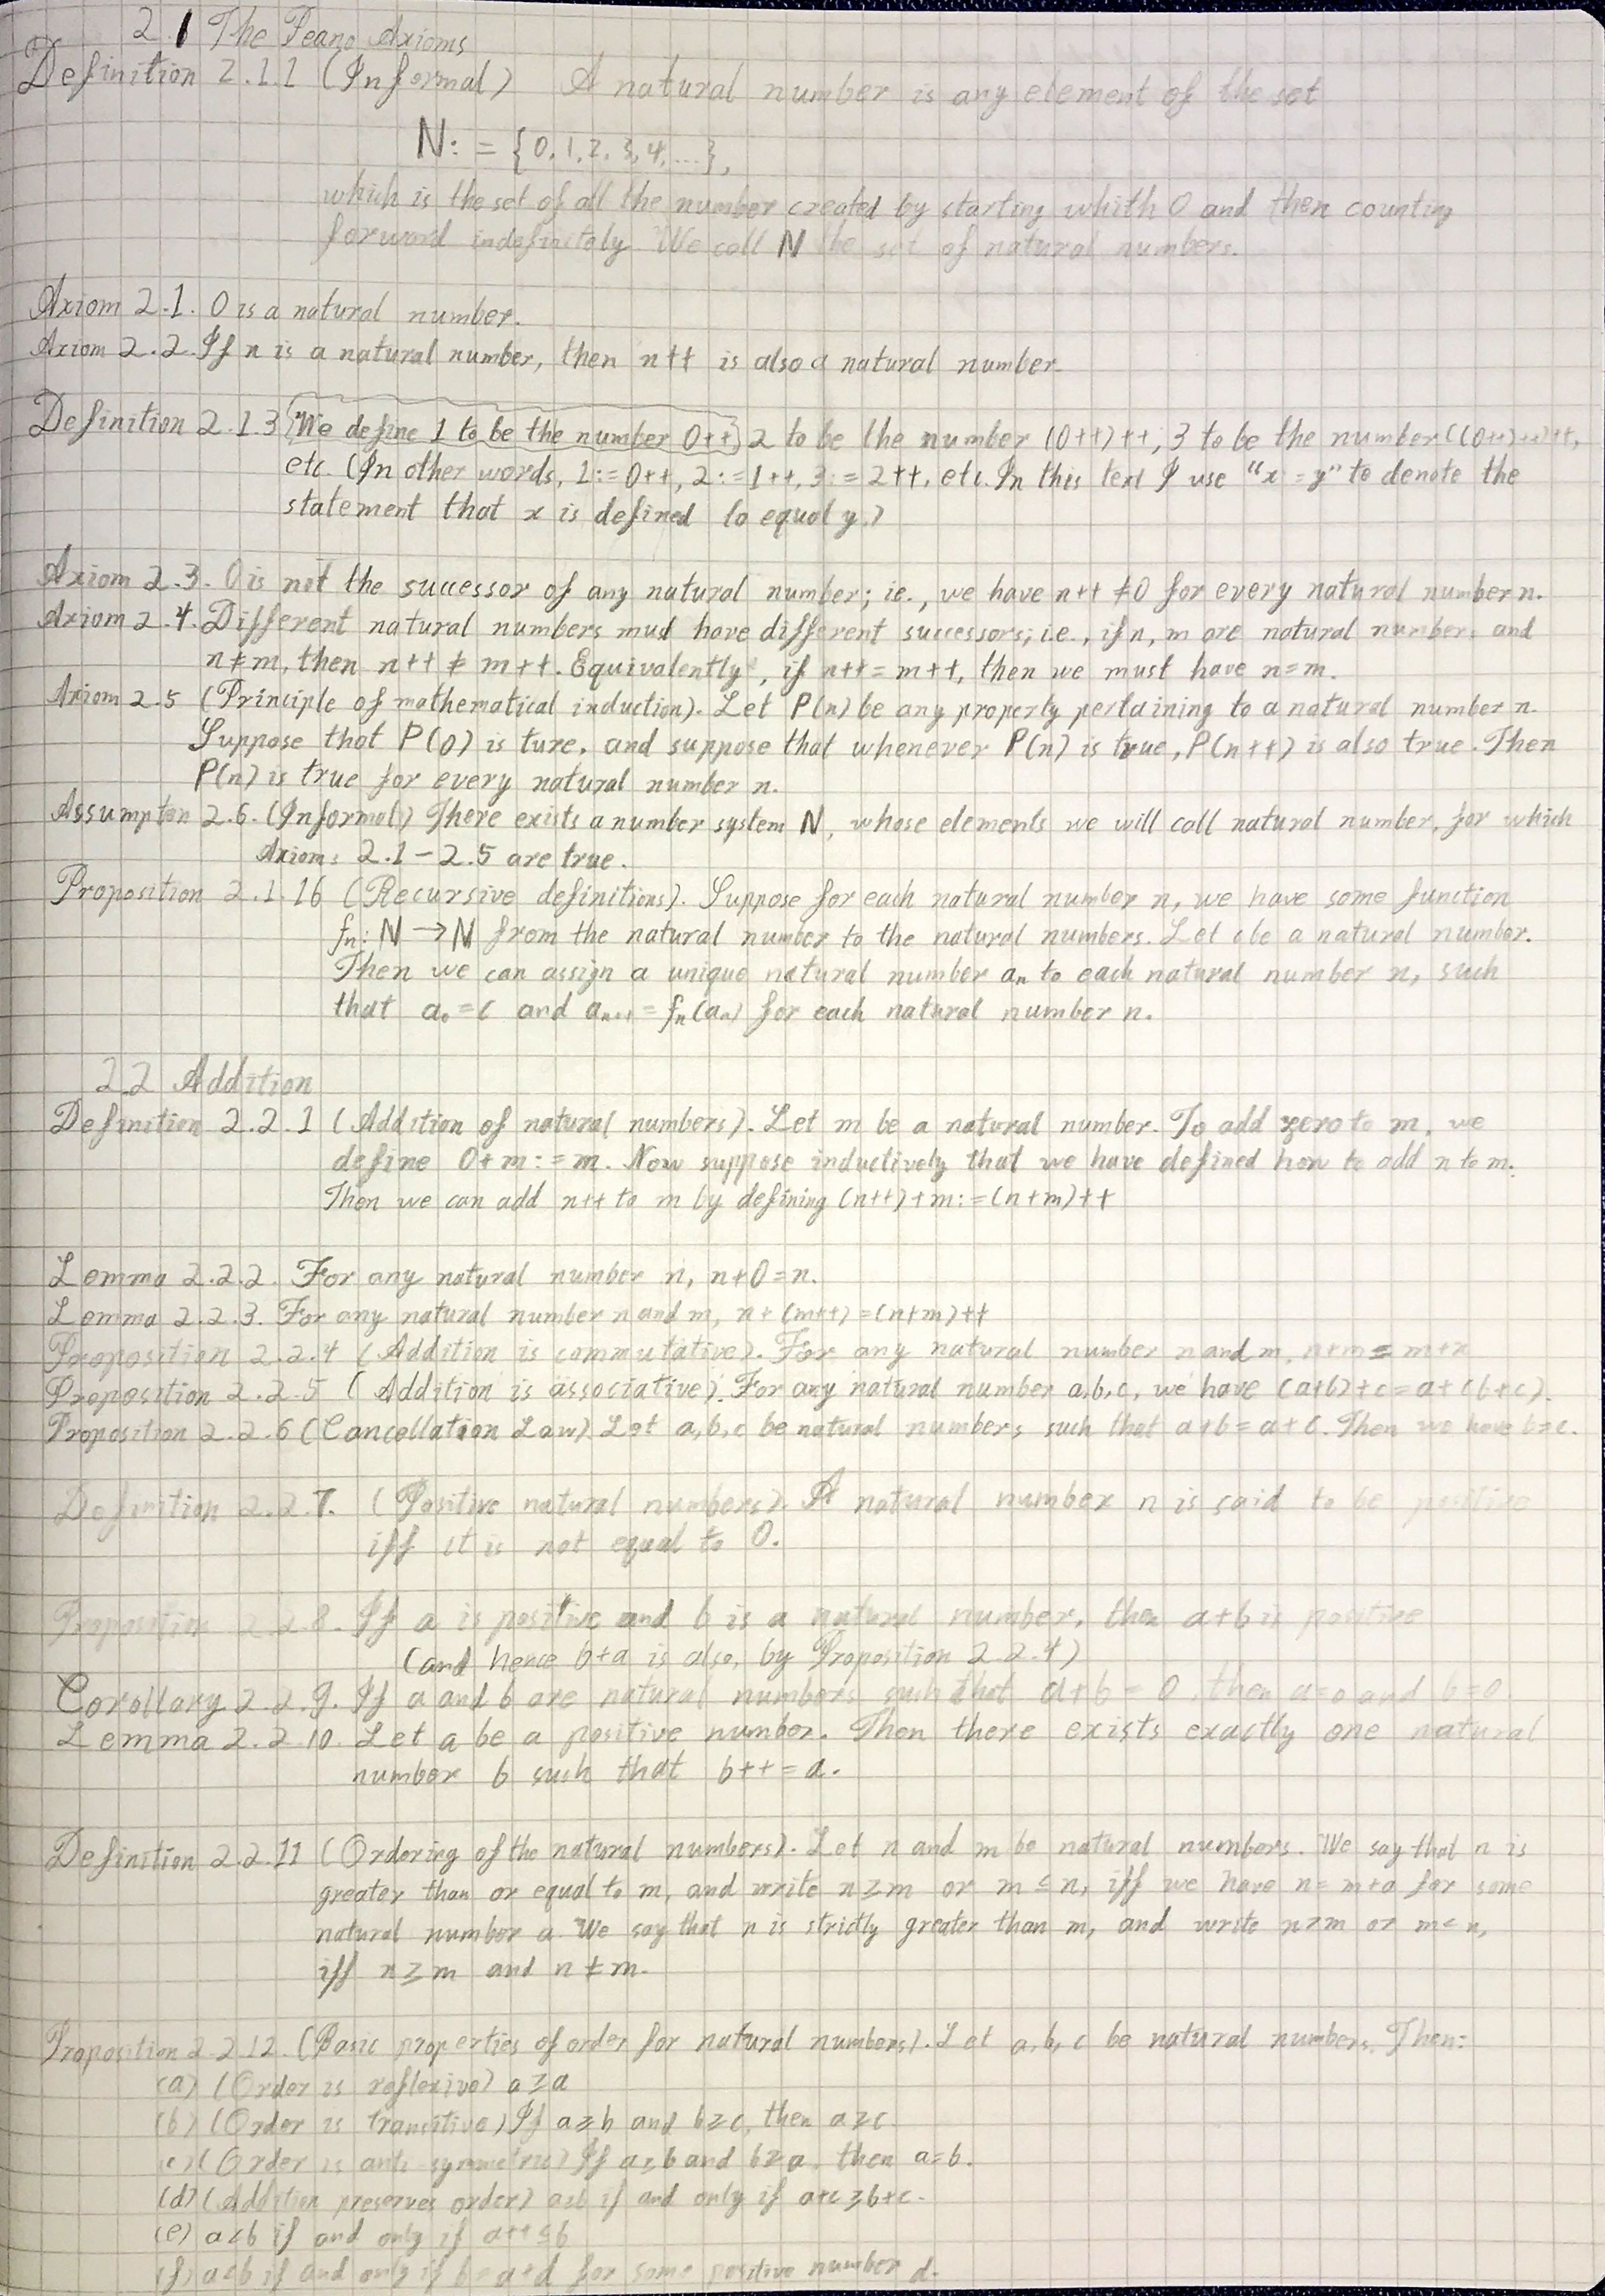 2.1 The Peano Axioms
Definition 2.1.1 (Informal) A natural number is any element of the set
N: = {0, 1, 2, 3, 4, ...},
which is the set of all the number created by starting whith 0 and then counting
forword indefinitely We call N the set of natural numbers.
Axiom 2.1. 0 is a natural number.
Axiom 2.2. If n is a natural number, then n++ is also a natural number.
Definition 2.1.3 We define 1 to be the number 0++, 2 to be the number (0++)++, 3 to be the number ((0++)++)++,
etc. (In other words, 1:=0++, 2:=1++, 3:=2++, etc. In this text I use "x:=y" to denote the
statement that x is defined to equal y.)
Axiom 2.3. 0 is not the successor of any natural number; i.e., we have n++ ≠ 0 for every natural number n.
Axiom 2.4. Different natural numbers must have different successors; i.e., if n, m are natural numbers and
n≠m, then n++ ≠ m++. Equivalently, if n++ = m++, then we must have n=m.
Axiom 2.5 (Principle of mathematical induction). Let P(n) be any property pertaining to a natural number n.
Suppose that P(0) is ture, and suppose that whenever P(n) is true, P(n++) is also true. Then
P(n) is true for every natural number n.
Assumpton 2.6. (Informal) There exists a number system N, whose elements we will call natural number, for which
Axioms 2.1 - 2.5 are true.
Proposition 2.1.16 (Recursive definitions). Suppose for each natural number n, we have some function
fₙ: N → N from the natural number to the natural numbers. Let c be a natural number.
Then we can assign a unique natural number aₙ to each natural number n, such
that a₀ = c and aₙ₊₊ = fₙ(aₙ) for each natural number n.
2.2 Addition
Definition 2.2.1 (Addition of natural numbers). Let m be a natural number. To add zero to m, we
define 0+m:=m. Now suppose inductively that we have defined how to add n to m.
Then we can add n++ to m by defining (n++)+m:=(n+m)++
Lemma 2.2.2. For any natural number n, n+0=n.
Lemma 2.2.3. For any natural number n and m, n+(m++)=(n+m)++
Proposition 2.2.4 (Addition is commutative). For any natural number n and m, n+m = m+n
Proposition 2.2.5 (Addition is associative). For any natural number a,b,c, we have (a+b)+c=a+(b+c).
Proposition 2.2.6 (Cancellation Law) Let a,b,c be natural numbers such that a+b=a+c. Then we have b=c.
Definition 2.2.7. (Positive natural numbers). A natural number n is said to be positive
iff it is not equal to 0.
Proposition 2.2.8. If a is positive and b is a natural number, then a+b is positive
(and hence b+a is also, by Proposition 2.2.4)
Corollary 2.2.9. If a and b are natural numbers such that a+b = 0, then a=0 and b=0
Lemma 2.2.10. Let a be a positive number. Then there exists exactly one natural
number b such that b++ = a.
Definition 2.2.11 (Ordering of the natural numbers). Let n and m be natural numbers. We say that n is
greater than or equal to m, and write n≥m or m≤n, iff we have n=m+a for some
natural number a. We say that n is strictly greater than m, and write n>m or m<n,
iff n≥m and n≠m.
Proposition 2.2.12. (Basic properties of order for natural numbers). Let a,b,c be natural numbers. Then:
(a) (Order is reflexive) a≥a
(b) (Order is transitive) If a≥b and b≥c, then a≥c.
(c) (Order is anti-symmetric) If a≥b and b≥a, then a=b.
(d) (Addition preserves order) a≥b if and only if a+c≥b+c.
(e) a<b if and only if a++≤b
(f) a<b if and only if b=a+d for some positive number d.